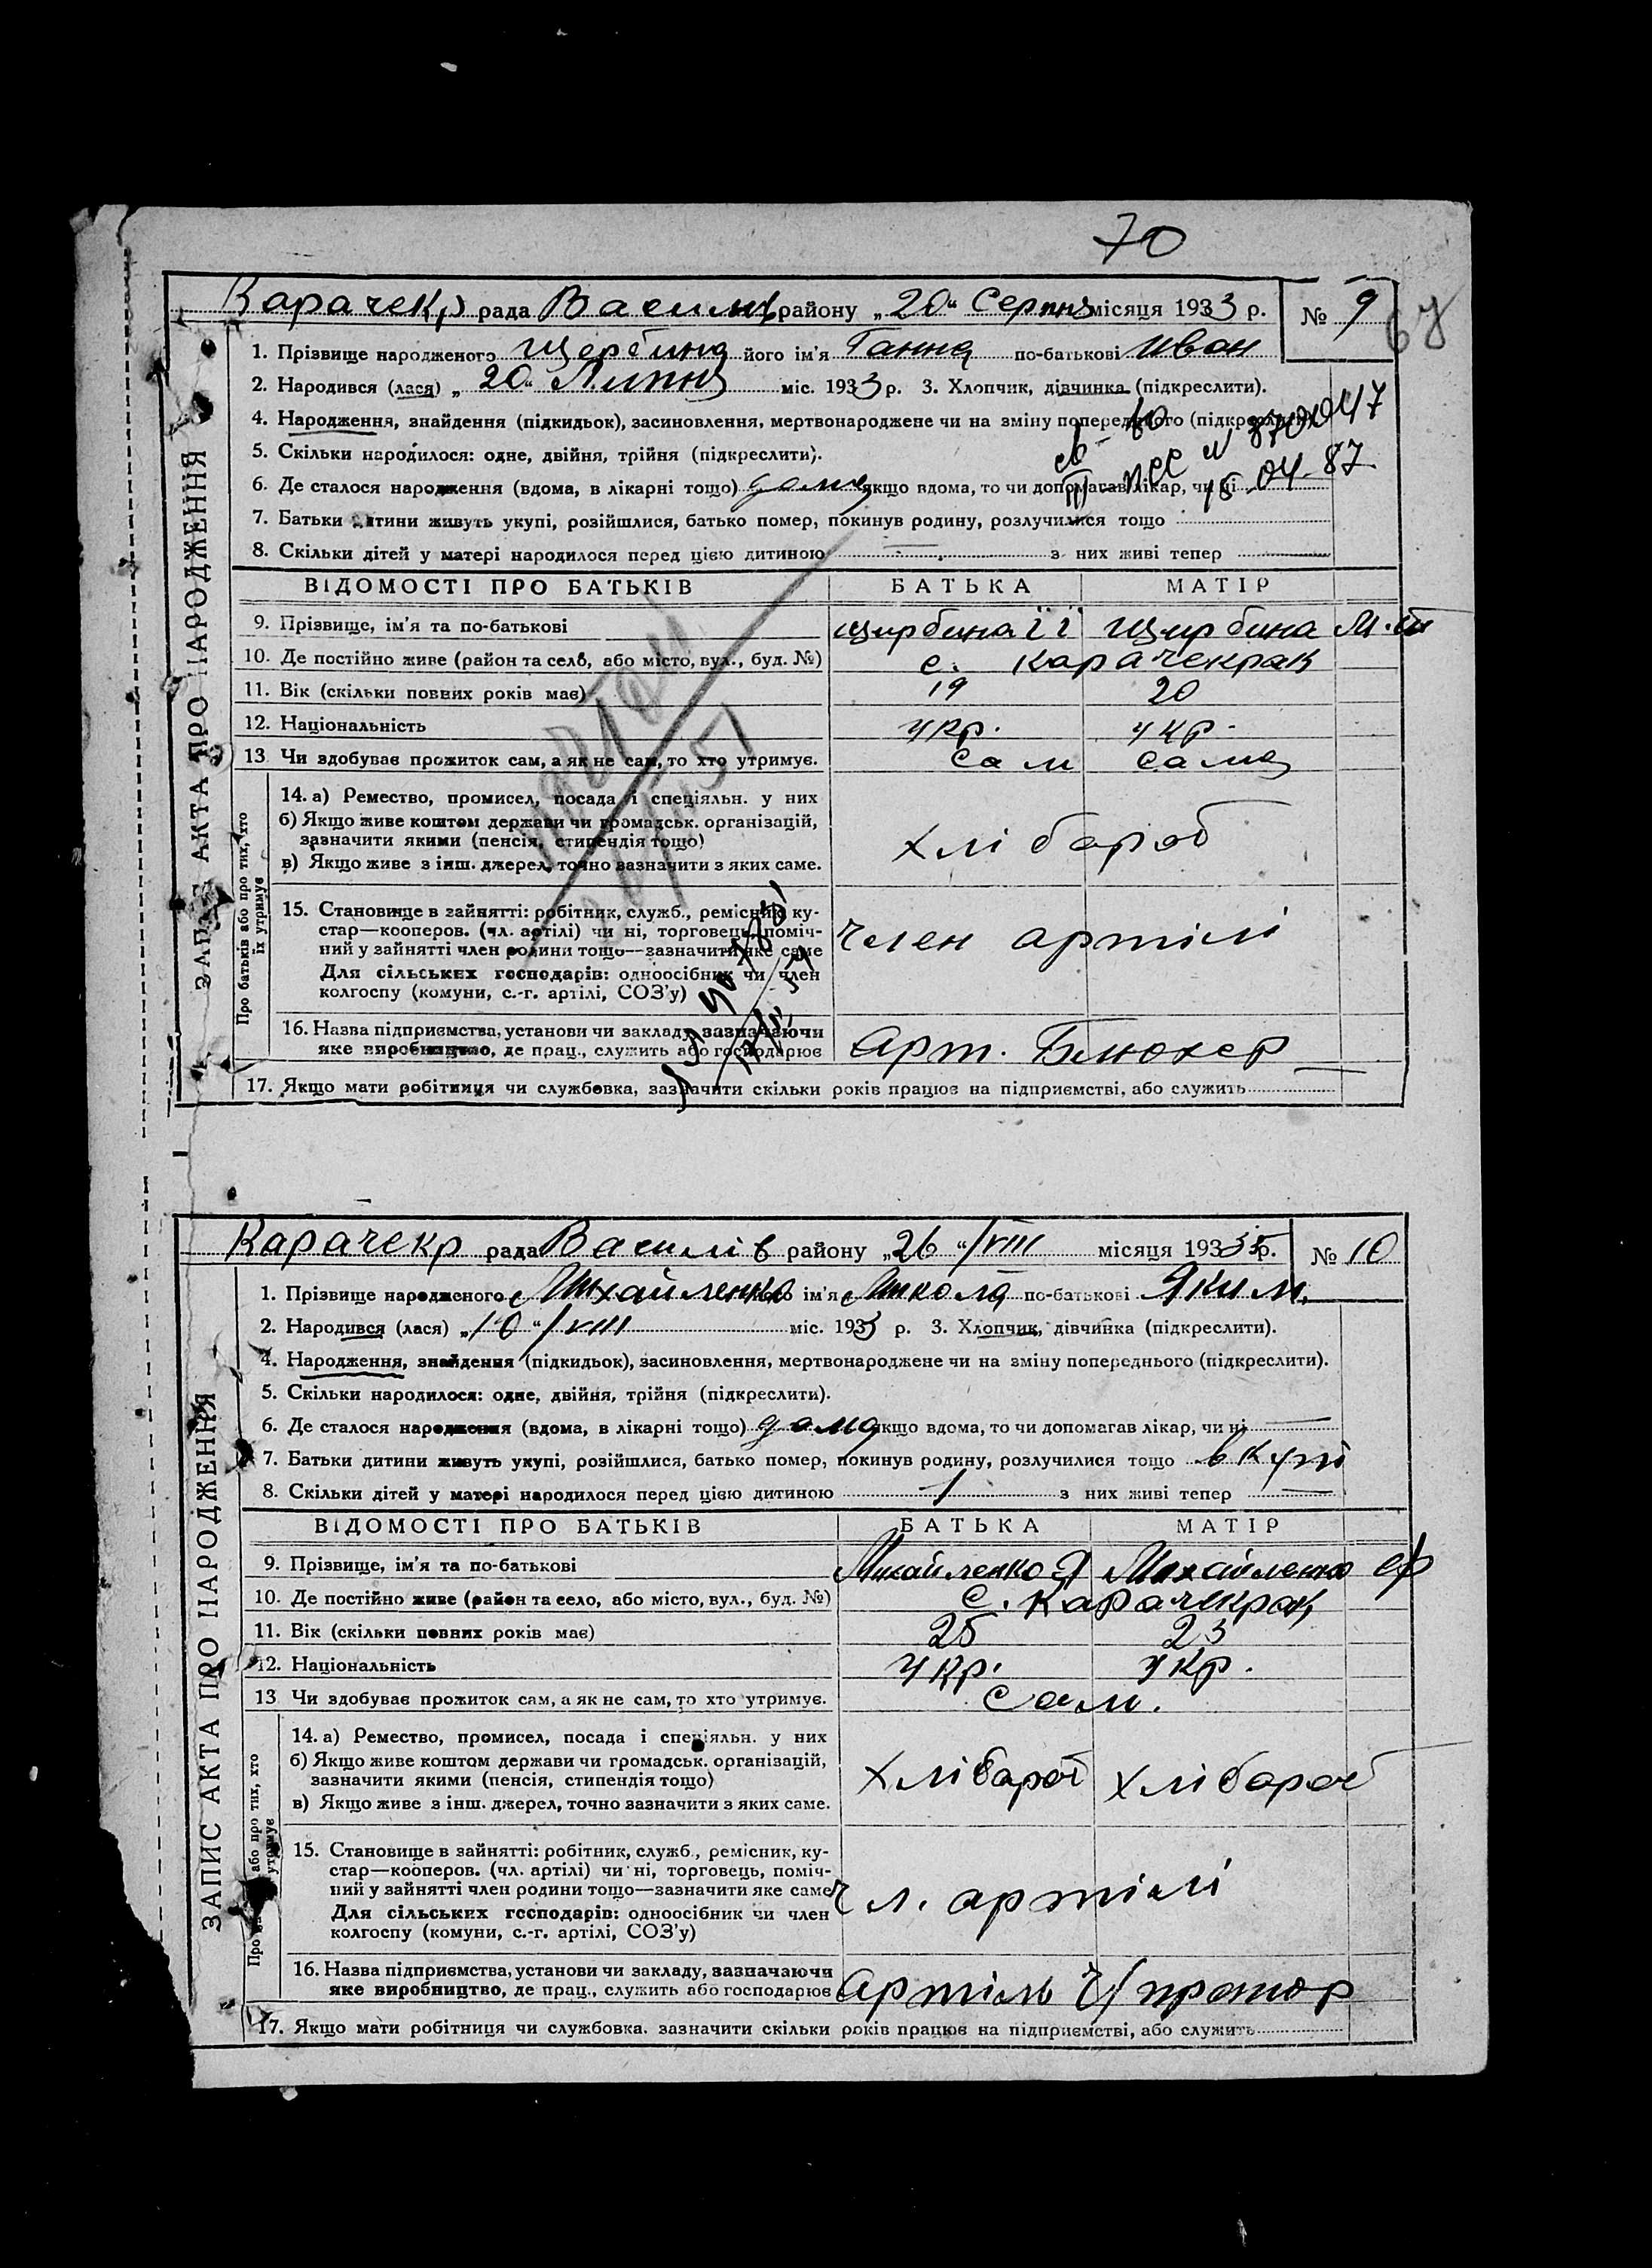 70
Карачекр рада Василів району „20“ Серпня місяця 1933 р. № 9
67
1. Прізвище народженого Щербина його ім'я Ганна по-батькові Иван
2. Народився (лася) „20“ Липня міс. 1933 р. 3. Хлопчик, дівчинка (підкреслити).
4. Народження, знайдення (підкидьок), засиновлення, мертвонароджене чи на зміну попереднього (підкреслити).
5. Скільки народилося: одне, двійня, трійня (підкреслити).
6. Де сталося народження (вдома, в лікарні тощо) дома якщо вдома, то чи допомагав лікар, чи ні
15.04.87
7. Батьки дитини живуть укупі, розійшлися, батько помер, покинув родину, розлучилися тощо
8. Скільки дітей у матері народилося перед цією дитиною — з них живі тепер —
ВІДОМОСТІ ПРО БАТЬКІВ БАТЬКА МАТІР
9. Прізвище, ім'я та по-батькові Щирбина І І Щирбина М.
10. Де постійно живе (район та село, або місто, вул., буд. №) с. Карачекрак
11. Вік (скільки повних років має) 19 20
12. Національність укр. укр.
13. Чи здобуває прожиток сам, а як не сам, то хто утримує. Сам Сама
14. а) Ремество, промисел, посада і спеціяльн. у них
б) Якщо живе коштом держави чи громадськ. організацій,
зазначити якими (пенсія, стипендія тощо)
в) Якщо живе з інш. джерел, точно зазначити з яких саме.
хлібароб
15. Становище в зайнятті: робітник, служб., ремісник, ку-
стар—кооперов. (чл. артілі) чи ні, торговець, поміч-
ний у зайнятті член родини тощо—зазначити яке саме
Для сільських господарів: одноосібник чи член
колгоспу (комуни, с.-г. артілі, СОЗ'у)
член артілі
16. Назва підприємства, установи чи закладу, зазначаючи
яке виробництво, де прац., служить або господарює
Арт. Блюхер
17. Якщо мати робітниця чи службовка, зазначити скільки років працює на підприємстві, або служить —
ЗАПИС АКТА ПРО НАРОДЖЕННЯ
Про батьків або про тих, хто
їх утримує
Карачекр рада Василів району „26“ /VIII місяця 1933 р. № 10
1. Прізвище народженого Михайленко його ім'я Микола по-батькові Яким.
2. Народився (лася) „10“ /VIII міс. 1933 р. 3. Хлопчик, дівчинка (підкреслити).
4. Народження, знайдення (підкидьок), засиновлення, мертвонароджене чи на зміну попереднього (підкреслити).
5. Скільки народилося: одне, двійня, трійня (підкреслити).
6. Де сталося народження (вдома, в лікарні тощо) дома якщо вдома, то чи допомагав лікар, чи ні —
7. Батьки дитини живуть укупі, розійшлися, батько помер, покинув родину, розлучилися тощо вкупі
8. Скільки дітей у матері народилося перед цією дитиною 1 з них живі тепер —
ВІДОМОСТІ ПРО БАТЬКІВ БАТЬКА МАТІР
9. Прізвище, ім'я та по-батькові Михайленко Я Михайленко еф
10. Де постійно живе (район та село, або місто, вул., буд. №) С. Карачекрак
11. Вік (скільки повних років має) 25 23
12. Національність укр. укр.
13. Чи здобуває прожиток сам, а як не сам, то хто утримує. Сам.
14. а) Ремество, промисел, посада і спеціяльн. у них
б) Якщо живе коштом держави чи громадськ. організацій,
зазначити якими (пенсія, стипендія тощо)
в) Якщо живе з інш. джерел, точно зазначити з яких саме.
хлібароб хлібароб
15. Становище в зайнятті: робітник, служб., ремісник, ку-
стар—кооперов. (чл. артілі) чи ні, торговець, поміч-
ний у зайнятті член родини тощо—зазначити яке саме
Для сільських господарів: одноосібник чи член
колгоспу (комуни, с.-г. артілі, СОЗ'у)
чл. артілі
16. Назва підприємства, установи чи закладу, зазначаючи
яке виробництво, де прац., служить або господарює
Артіль
17. Якщо мати робітниця чи службовка, зазначити скільки років працює на підприємстві, або служить
ЗАПИС АКТА ПРО НАРОДЖЕННЯ
або про тих, хто
утримує